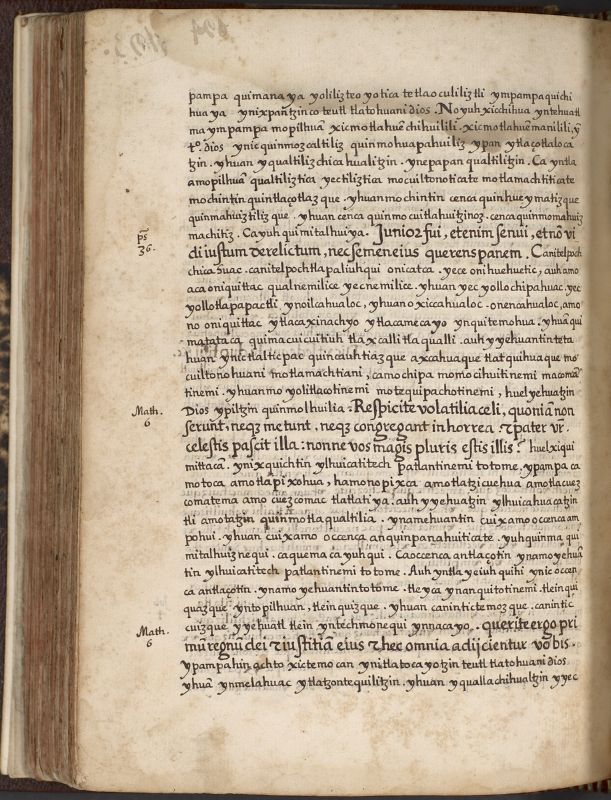 pampa quimanaya yolilizteo yotica tetlaoculiliztli ympampa quichi
huaya ynixpantzinco teutl tlatohuani dios. No yuh xicchihua yntehuatl
ma ympampa mopilhuã xicmotlahuẽchihuilili. xicmotlahuẽmanilili, ỹ
tº. dios ynic quinmozcaltiliz quinmohuapahuiliz ypan ytlaçotlaloca
tzin. yhuan yqualtilizchicahualitzin. ynepapan qualtilitzin. Ca yntla
amopilhuã qualtiliztica yectiliztica mocuiltonoticate motlamachtiticate
mochintin quintlaçotlazque. yhuan mochintin cenca quinhueymatizque
quinmahuiztilizque. yhuan cenca quinmocuitlahuitzinoz. cenca quinmomahuiz
machitiz. Ca yuh quimitalhuiya. Junior fui, etenim senui, et nõ vi
di iustum derelictum, nec semen eius querens panem. Canitelpoch
chicahuac. canitelpochtlapaliuhqui onicatca. yece onihuehuetic, auh amo
aca oniquittac qualnemilice yecnemilice. yhuan yec yollochipahuac. yec
yollotlapapactli ynoilcahualoc, yhuan oxiccahualoc. onencahualoc, amo
no oniquittac ytlacaxinachyo ytlacamecayo ynquitemohua. yhuã qui
matataca quimacuicuitiuh tlaxcalli tlaqualli. auh yyehuantin teta
huan ynic tlalticpac quincauhtiazque axcahuaque tlatquihuaque mo
cuiltonohuani motlamachtiani, camo chipa momocihuitinemi macoman
tinemi. yhuan mo yolitlacotinemi motequipachotinemi, huel yehuatzin
Math. 6
Dios ypiltzin quinmolhuilia. Respicite volatilia celi, quoniã non
serunt, neqz metunt, neqz congregant in horrea et pater vr.
celestis pascit illa: nonne vos magis pluris estis illis? huel xiqui
mittacã. ynixquichtin ylhuicatitech patlantinemi totome, ypampa ca
motoca amotlapixohua, hamono pixca amotlatzicuehua amotlacuez
comatema amo cuezcomac tlatlatiya. auh yyehuatzin ylhuicahuacatzin
tli amotatzin quinmotlaqualtilia. ynamehuantin cuix amo occenca am
pohui. yhuan cuix amo occenca anquinpanahuiticate. yuhquinma qui
mitalhuiznequi. caquemaca yuhqui. Ca occenca antlaçotin ynamo yehuã
tin ylhuicatitech patlantinemi totome. Auh yntla yeiuh quihi ynic occen
ca antlaçotin. ynamo yehuantin totome. tle yca ynanquitotinemi. tlein qui
quazque ynto pilhuan, tlein quizque. yhuan canin tictemozque. canin tic
cuizque yyehuatl tlein yntechmonequi ynnacayo. querite ergo pri
Math. 6
mũ regnũ dei et iustitiã eius et hec omnia adijcientur vobis.
ypampahin achto xictemocan ynitlatocayotzin teutl tlatohuani dios
yhuã ynmelahuac ytlatzontequilitzin. yhuan yquallachihualtzin yyec
pš 36.